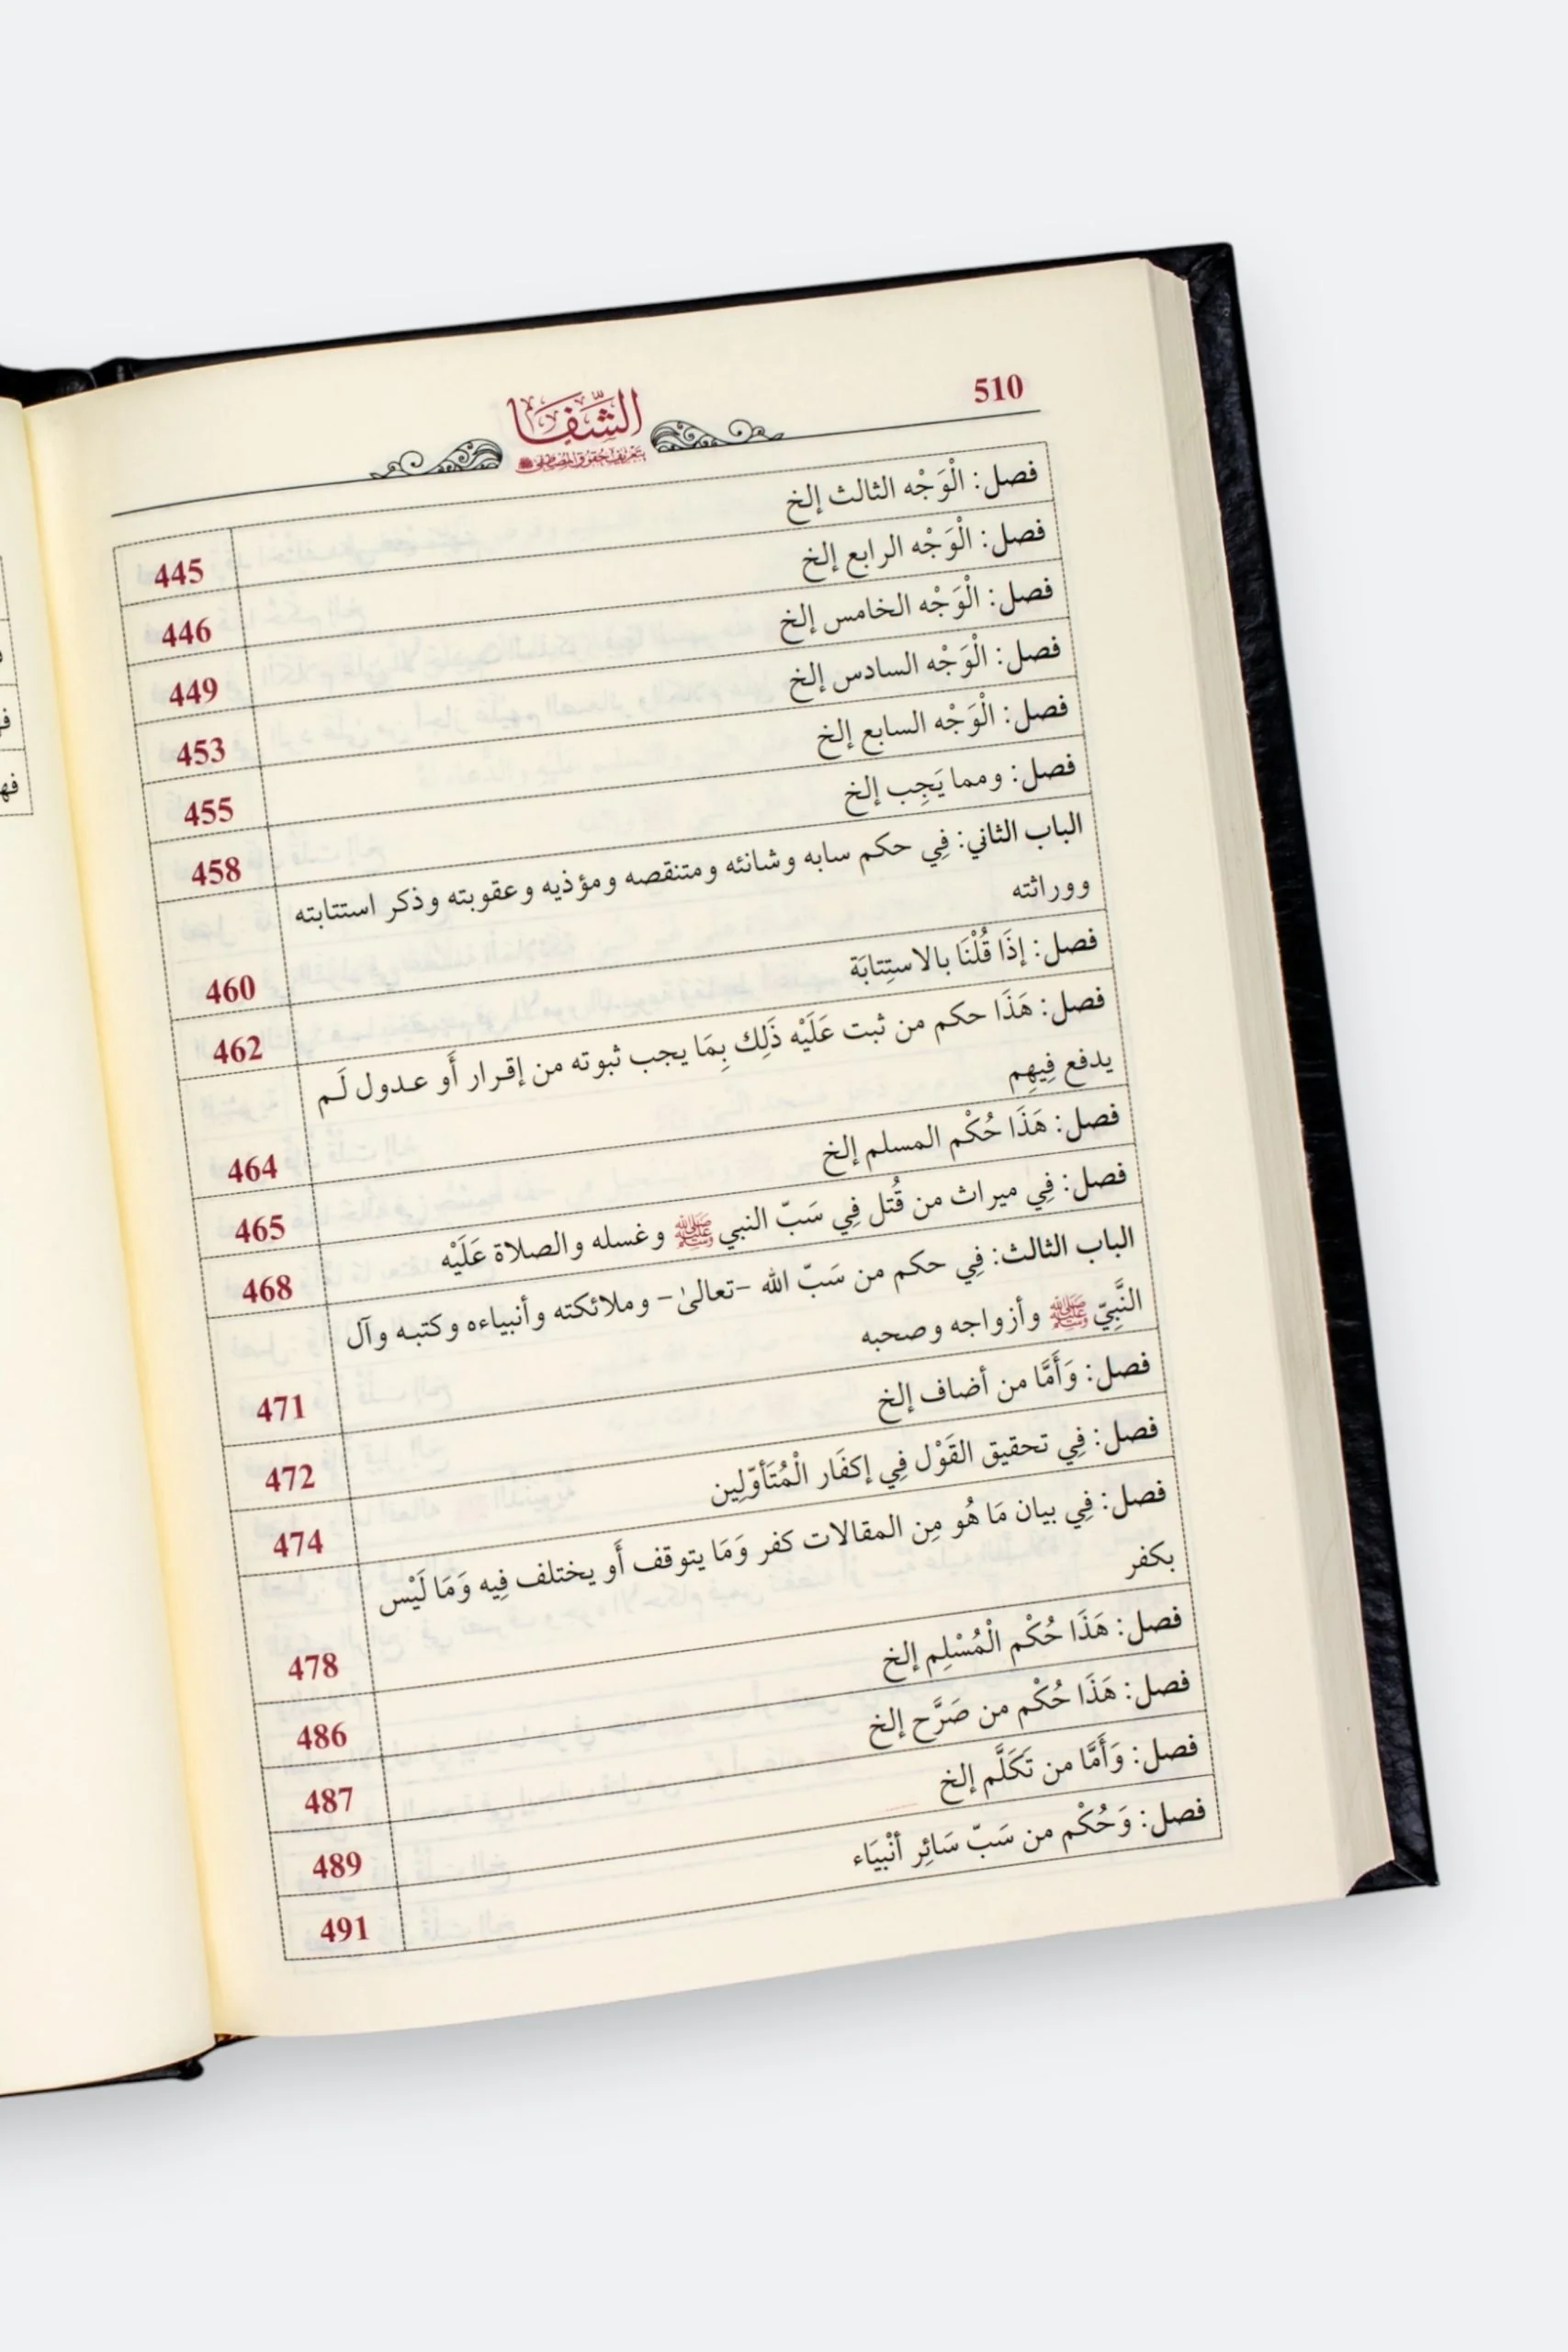 510
الشِّفَا
بتعريف حقوق المصطفى ﷺ
فصل: الْوَجْه الثالث إلخ 445
فصل: الْوَجْه الرابع إلخ 446
فصل: الْوَجْه الخامس إلخ 449
فصل: الْوَجْه السادس إلخ 453
فصل: الْوَجْه السابع إلخ 455
فصل: ومما يَجِب إلخ 458
الباب الثاني: فِي حكم سابه وشانئه ومتنقصه ومؤذيه وعقوبته وذكر استتابته
ووراثته 460
فصل: إذَا قُلْنَا بالاستِتابَة 462
فصل: هَذَا حكم من ثبت عَلَيْه ذَلِك بِمَا يجب ثبوته من إقرار أَو عدول لَم
يدفع فِيهِم 464
فصل: هَذَا حُكْم المسلم إلخ 465
فصل: فِي ميراث من قُتل فِي سَبّ النبي ﷺ وغسله والصلاة عَلَيْه 468
الباب الثالث: فِي حكم من سَبّ الله -تعالىٰ- وملائكته وأنبياءه وكتبه وآل
النَّبِيّ ﷺ وأزواجه وصحبه 471
فصل: وَأَمَّا من أضاف إلخ 472
فصل: فِي تحقيق القَوْل فِي إكفَار الْمُتَأوّلِين 474
فصل: فِي بيان مَا هُو مِن المقالات كفر وَمَا يتوقف أَو يختلف فِيه وَمَا لَيْس
بكفر 478
فصل: هَذَا حُكْم الْمُسْلِم إلخ 486
فصل: هَذَا حُكْم من صَرَّح إلخ 487
فصل: وَأَمَّا من تَكَلَّم إلخ 489
فصل: وَحُكْم من سَبّ سَائِر أنْبِيَاء 491